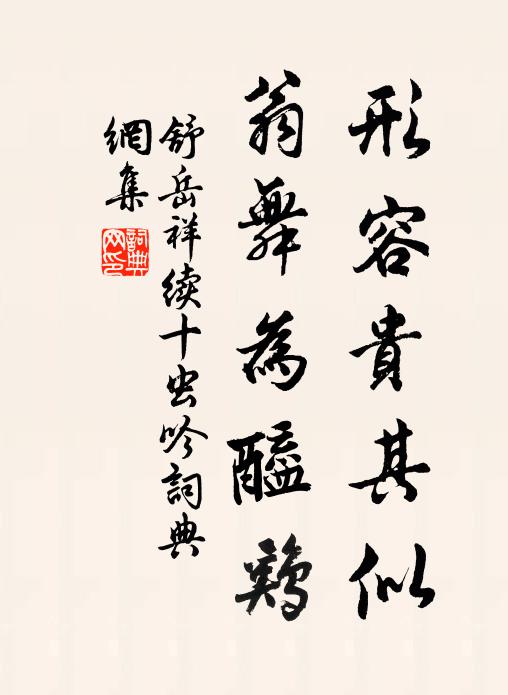 形容貴其似
翁舞為醯鶏
舒岳祥续十虫吟詞典
網集
詞典網印